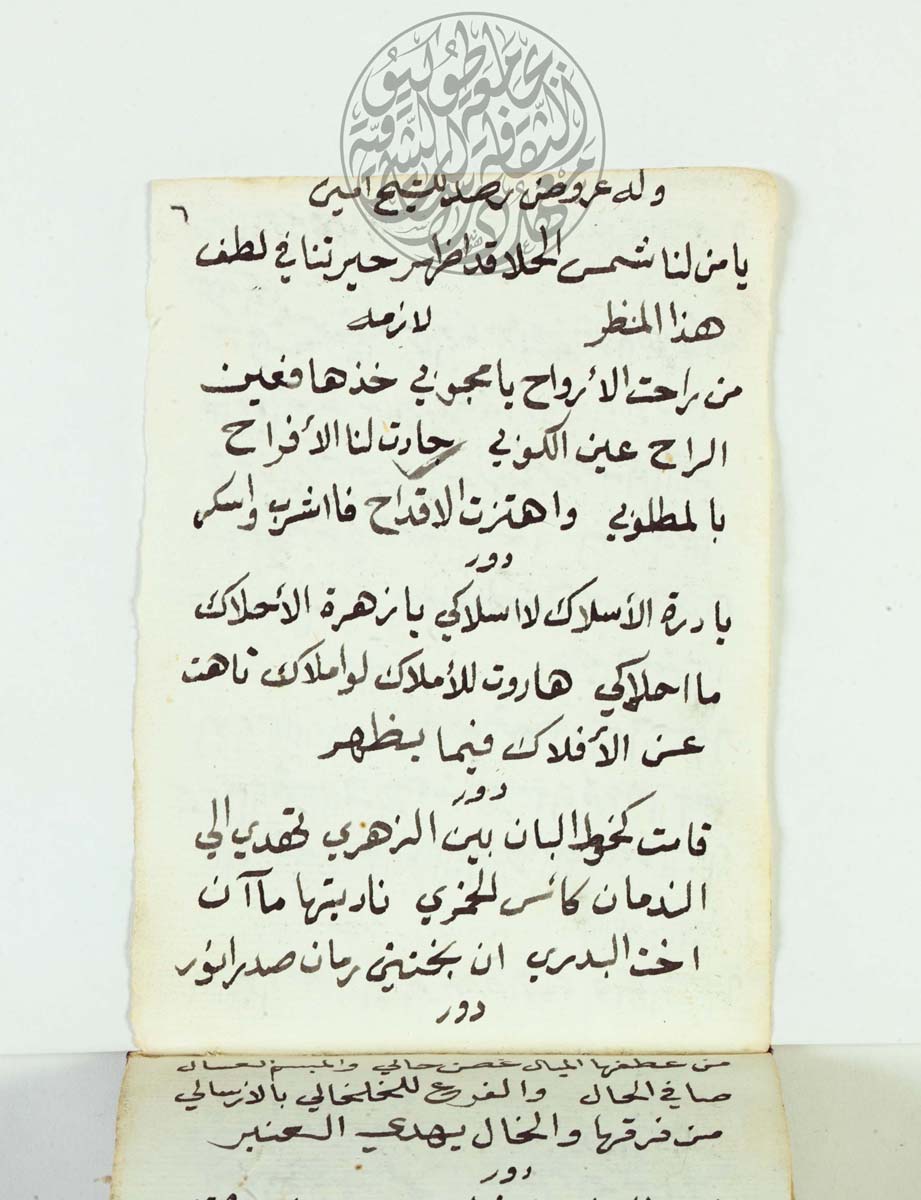 وله عروض رصد للشيخ امين
٦
يا من لنا شمس الحلا قد اظهر حيرتنا في لطف
هذا المنظر لازمه
من راحت الأرواح يا محبوبي خذها فعين
الراح عين الكوبي جادت لنا الأفراح
بالمطلوبي واهتزت الاقداح فا اشرب واسكر
دور
يا درة الأسلاك لا اسلاكي يا زهرة الأحلاك
ما احلاكي هاروت للأملاك لو املاك تاهت
عن الأفلاك فيما يظهر
دور
قامت كخوط البان بين الزهري تهدي الي
الندمان كائس الخمري ناديتها ما آن
اخت البدري ان يجتني رمان صدر
دور
من عطفها الميال غصن حالي والمبسم العسال
صافي الحال والفرع للخلخالي بالارسالي
من فرقها والخال يهدي العنبر
دور